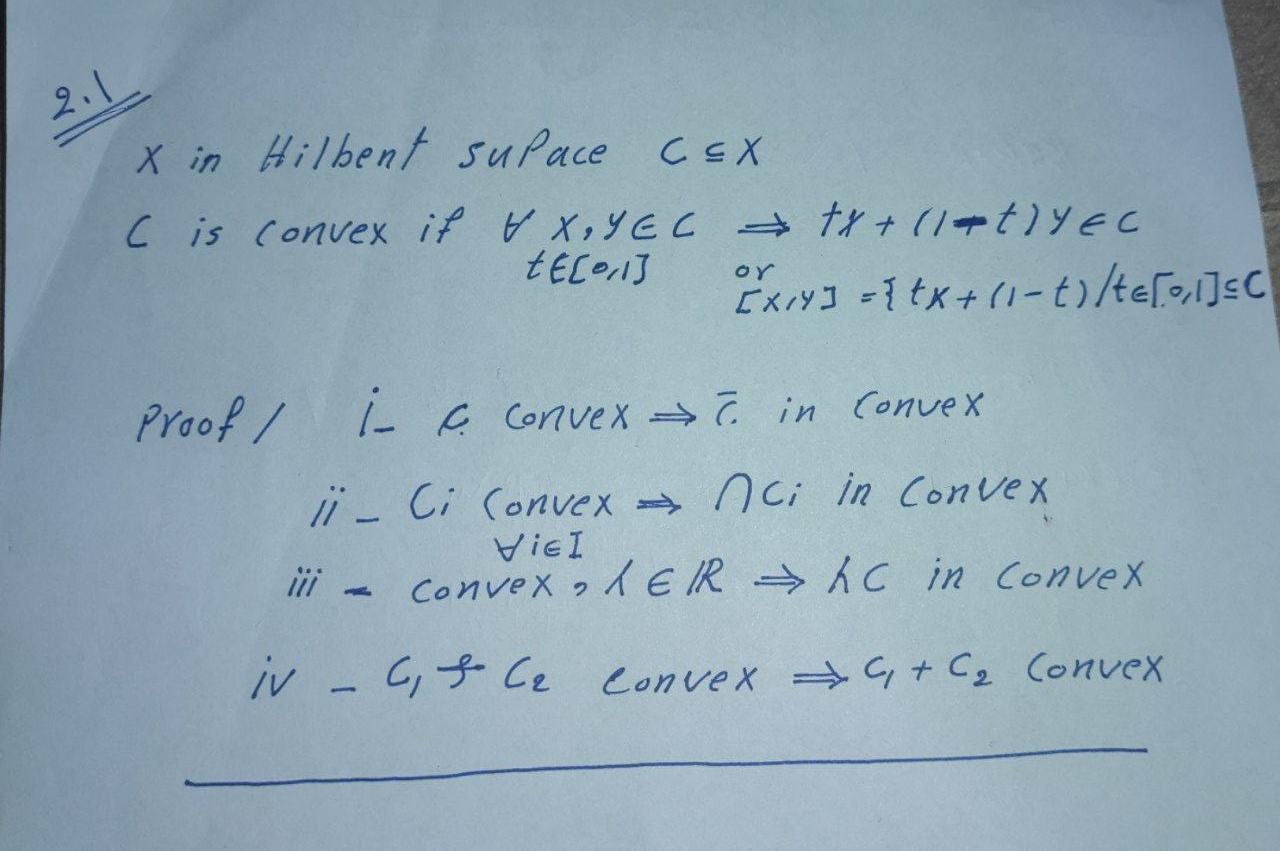 2.1
X in Hilbent suPace C ⊆ X
C is convex if ∀ x, y ∈ C ⇒ tx + (1-t) y ∈ C
t ∈ [0,1] or
[x,y] = { tx + (1-t) / t ∈ [0,1] ⊆ C
Proof / i - C convex ⇒ C̄ in convex
ii - Ci convex ⇒ ∩Ci in convex
∀ i ∈ I
iii - convex, λ ∈ ℝ ⇒ λC in convex
iv - C₁ & C₂ convex ⇒ C₁ + C₂ convex